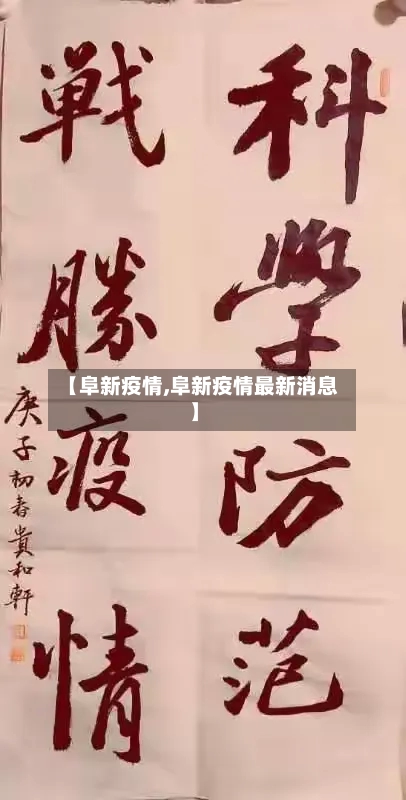 科學防范
戰勝疫情
庚子初春貴和軒
【阜新疫情,阜新疫情最新消息
】